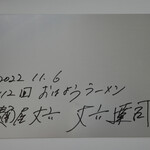 2022 11.6
12回 おはようラーメン
麺屋丈六 丈六